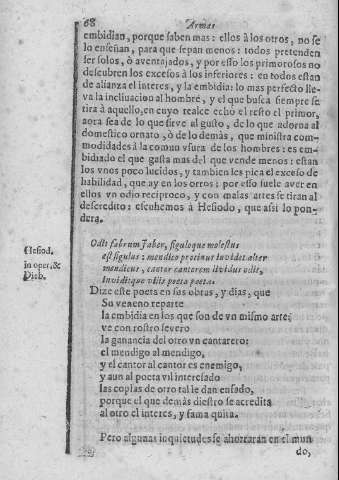 68 Armas
embidian, porque saben mas: ellos à los otros, no se
lo enseñan, para que sepan menos: todos pretenden
ser solos, ò aventajados, y por esso los primorosos no
descubren los excesos à los inferiores: en todos estan
de alianza el interes, y la embidia: lo mas perfecto lle-
va la inclinacion al hombre, y el que busca siempre se
tira à aquello, en cuyo realce echò el resto el primor,
aora sea de lo que sirve al gusto, de lo que adorna al
domestico ornato, ò de lo demàs, que ministra com-
modidades à la comun vsura de los hombres: es em-
bidiado el que gasta mas del que vende menos: estan
los vnos poco lucidos, y tambien les pica el exceso de
habilidad, que ay en los otros: por esso suele aver en
ellos vn odio reciproco, y con malas artes se tiran al
descredito: escuhemos à Hesiodo, que asi lo pon-
dera.
Odit fabrum faber, figuloque molestus
Hesiod. est figulus: mendico protinus invidet alter
in oper. & mendicus, cantor cantorem lividus odit,
Dieb. Inviditque vliis poeta poeta.
Dize este poeta en sus obras, y dias, que
Su veneno reparte
la embidia en los que son de vn mismo arte;
ve con rostro severo
la ganancia del otro vn cantarero:
el mendigo al mendigo,
y el cantor al cantor es enemigo,
y aun al poeta vil interesado
las coplas de otro tal le dan enfado,
porque el que demàs diestro se acredita
al otro el interes, y fama quita.
Pero algunas inquietudes se ahorraràn en el mun
do,